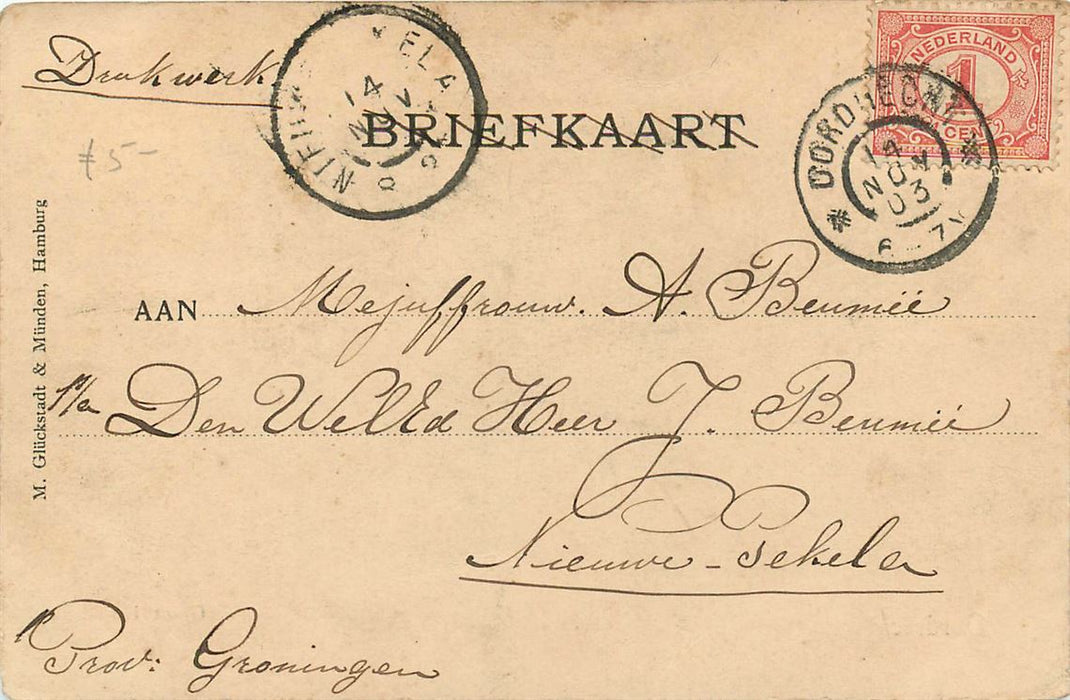 Drukwerk
NIEUW PEKELA
14 NOV
BRIEFKAART
NEDERLAND
1
CENT
DORDRECHT
14
NOV
03
6-7V
ƒ5-
M. Glückstadt & Münden, Hamburg
AAN Mejuffrouw. A. Beuméé
p/a Den WelEd Heer J. Beuméé
Nieuwe-Pekela
Prov: Groningen